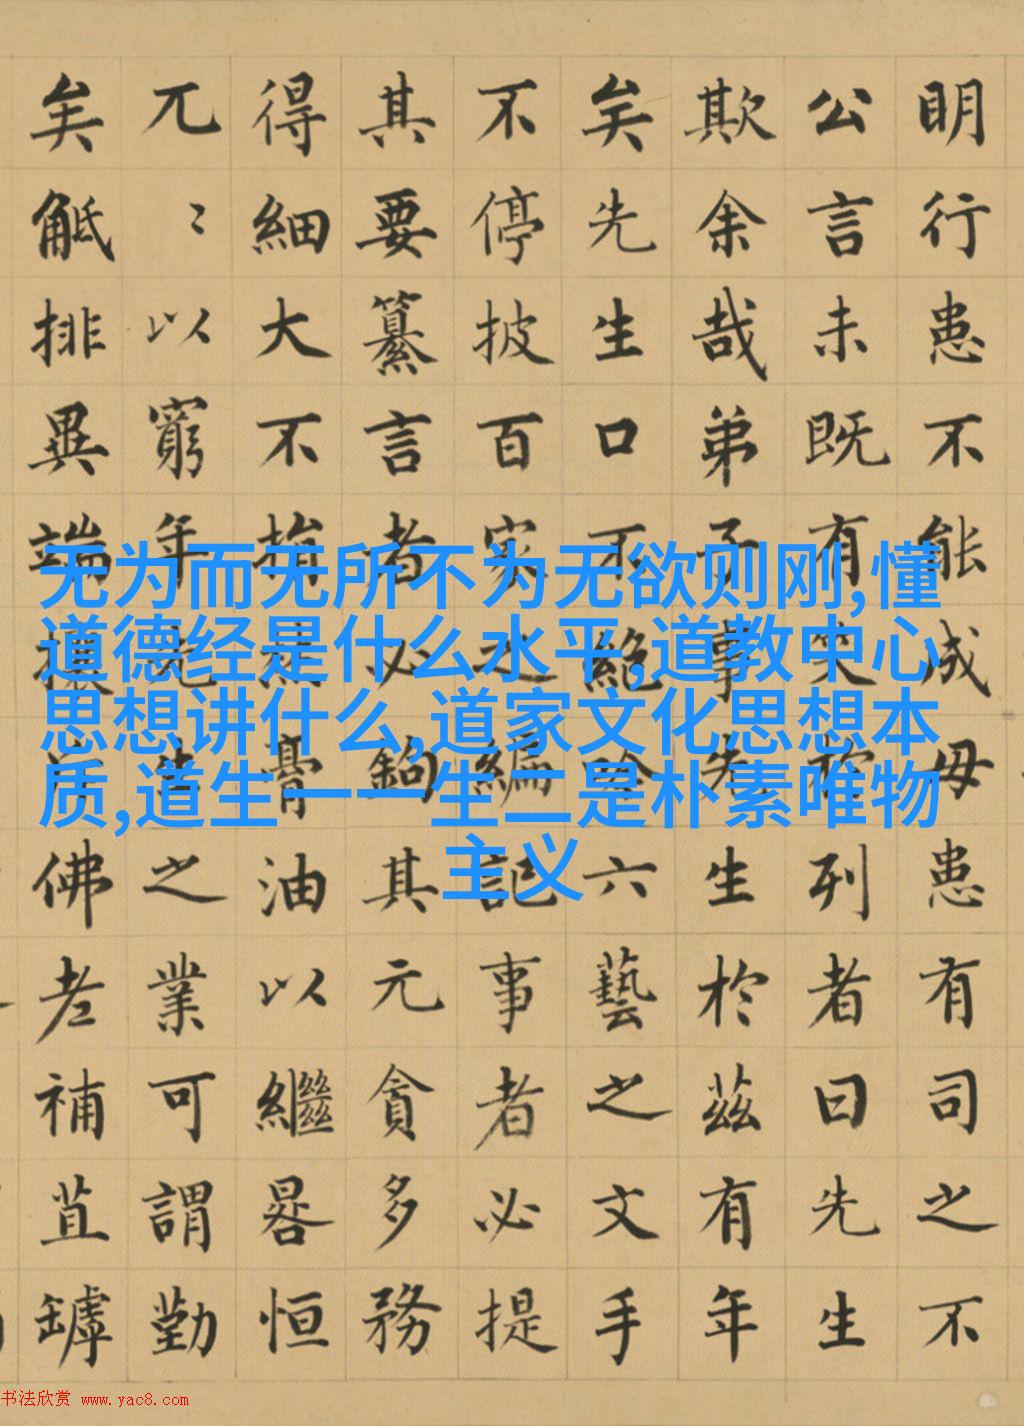 明行患不能成毋患有司之不
公言未既有笑於列者曰先生
欺余哉弟子事先生於茲有年
矣先生口不絶吟六藝之文手
不停披百家之編記事者必提
其要纂言者必鉤其元貪多務
得細大不捐焚膏油以繼晷恒
兀〻以窮年先生之業可謂勤
矣觝排異端攘斥佛老補苴罅
无为而无所不为无欲则刚,懂
道德经是什么水平,道教中心
思想讲什么,道家文化思想本
质,道生一一生二是朴素唯物
主义
书法欣赏 www.yac8.com